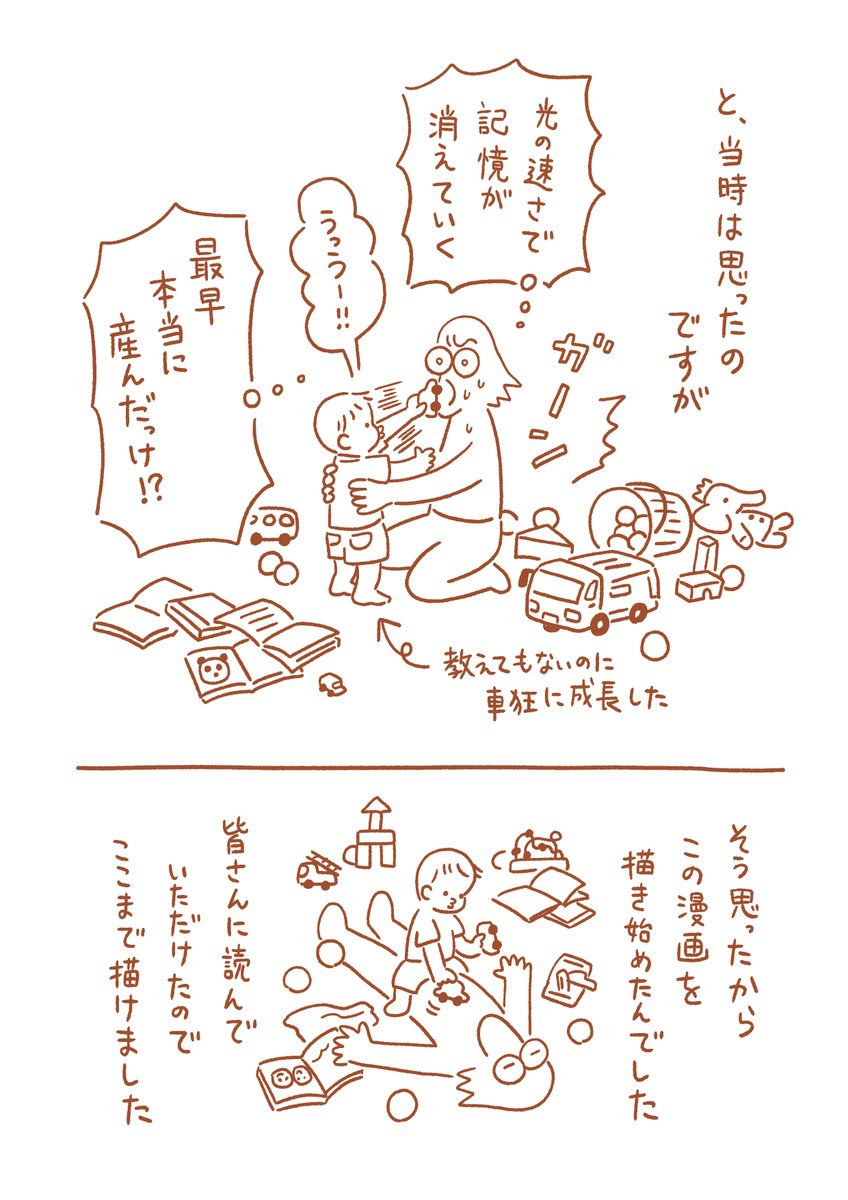 と、当時は思ったの
ですが
光の速さで
記憶が
消えていく
うっうー!!
最早
本当に
産んだっけ!?
ガーン
教えてもないのに
車狂に成長した
そう思ったから
この漫画を
描き始めたんでした
皆さんに読んで
いただけたので
ここまで描けました